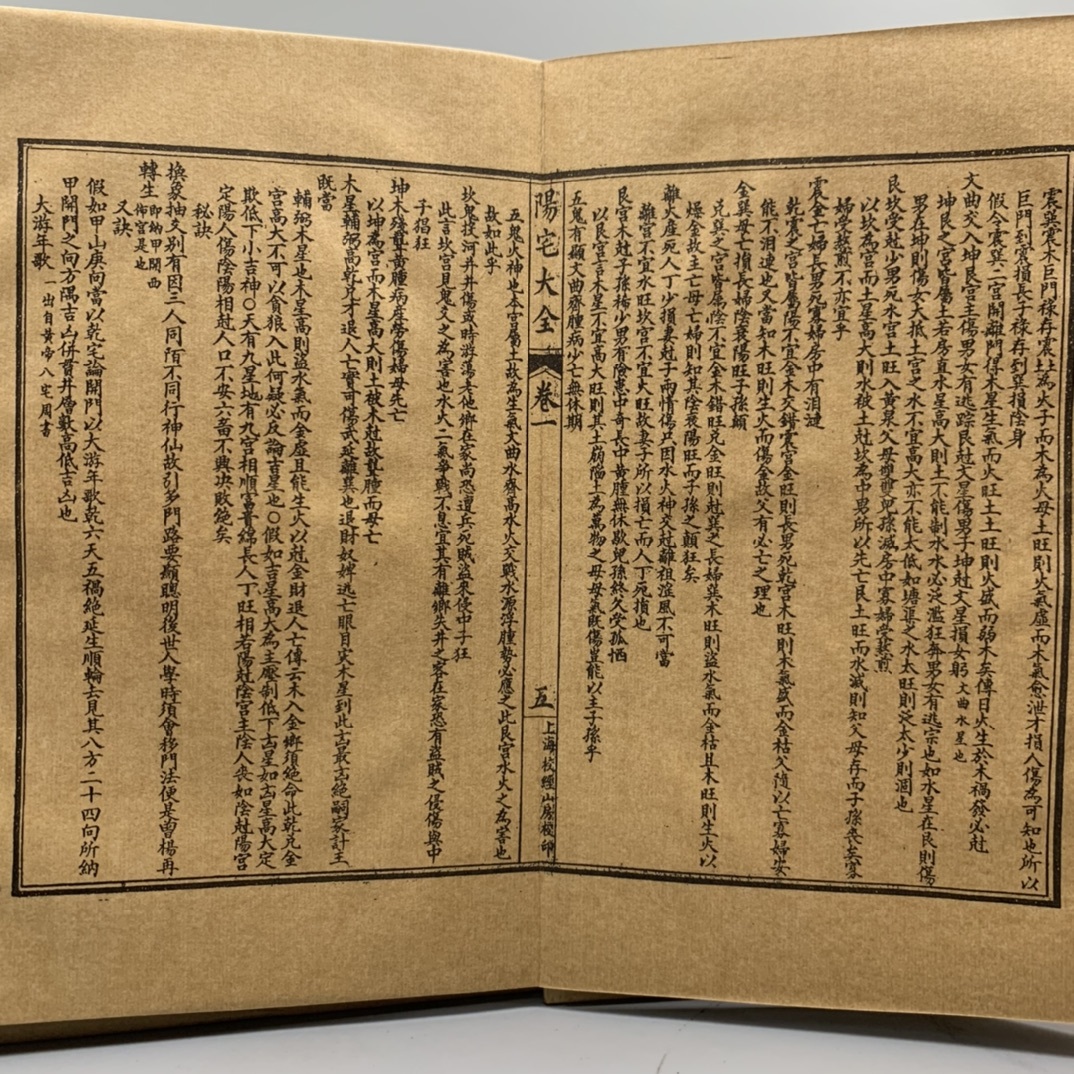 震巽震木巨門祿存震尅為火子而木為火母土旺則火氣虛而木氣愈泄才損人傷為可知也所以
巨門到震損長子祿存到巽損陰身
假令震巽二宮開離門得木星生氣而火旺土土旺則火盛而弱木矣傳曰火生於木禍發必尅
文曲交入坤艮宮主傷男女有逃踪艮尅文星傷男子坤尅文星損女躬 文曲水星也
坤艮之宮皆屬土若房直水星高大則土不能制水水必泛濫狂奔男女有逃宗也如水星在艮則傷
男在坤則傷女大抵土宮之水不宜高大亦不能太低如塘渠之水太旺則泛太少則涸也
艮坎受尅少男死水宮土旺入黃泉父母雙雙兒孫減房中寡婦受熬煎
以坎為宮而土星高大則水被土尅坎為中男所以先亡艮土旺而水減則知父母存而子孫喪矣寡
婦受熬煎不亦宜乎
震金亡婦長男死寡婦房中有泪漣
乾震之宮皆屬陽不宜金木交錯震宮金旺則長男死乾宮木旺則木氣盛而金枯父隨以亡寡婦安
能不泪漣也又當知木旺則生火而傷金故父有必亡之理也
金巽母亡損長婦陰衰陽旺子孫顛
兌巽之宮皆屬陰不宜金木錯旺兌金旺則尅巽之長婦巽木旺則盜水氣而金枯且木旺則生火以
爍金故主亡母亡婦則知其陰衰陽旺而子孫之顛狂矣
離火產死人丁少損妻尅子兩情傷只因水火神交尅離祖湓風不可當
離宮不宜水旺坎宮不宜火旺故妻子所以損亡而人丁死損也
艮宮木尅子孫稀少男有險患中奇長中黃腫無休歇兒孫終久受孤恓
以艮宮言木星不宜高大旺則其土崩陷土為萬物之母母氣既傷豈能以主子孫乎
五鬼有顯文曲齋腫病少亡無休期
陽宅大全 卷一 五 上海校經山房校印
五鬼火神也本宮屬土故為生氣文曲水齋高水火交戰水源浮腫勢必應之此艮宮水火之為害也
故如此乎
坎鬼投河井并傷或時游蕩走他鄉在家尚恐遭兵死賊盜來侵中子狂
此言坎宮見鬼文之為害也水火二氣爭戰不息宜其有離鄉失井之客在家恐有盜賊之侵傷與中
子猖狂
坤木殘聾黃腫病產勞傷婦母先亡
以坤為宮而木星高大則土被木尅故聾腫而母亡
木星輔弼高乾斗才退人亡實可傷武延離巽也退財奴婢逃亡眼目災木星到此吉最吉絕嗣家計主
既當
輔弼木星也木星高則盜水氣而金虛且能生火以尅金財退人亡傳云木入金鄉須絕命此乾兌金
宮高大不可以貪狼入此何疑必反論吉星也〇假如吉星高大為主壓剋低下凶星如凶星高大定
欺低下小吉神〇天有九星地有九宮相順富貴綿長人丁旺相若陽尅陰宮主陰人喪如陰尅陽宮
定陽人傷陰陽相尅人口不安六畜不興塊敗絕矣
秘訣
換象抽爻別有因三人同陌不同行神仙故引多門路要顯聰明後世人學時須會移門法便是曾楊再
轉生 即納甲開西 衙宮是也
又訣
假如甲山庚向當以乾宅論開門以大游年歌乾六天五禍絕延生順輪去見其八方二十四向所納
甲開門之向方隅吉凶併貫井層數高低吉凶也
大游年歌 一出自黃帝八宅周書